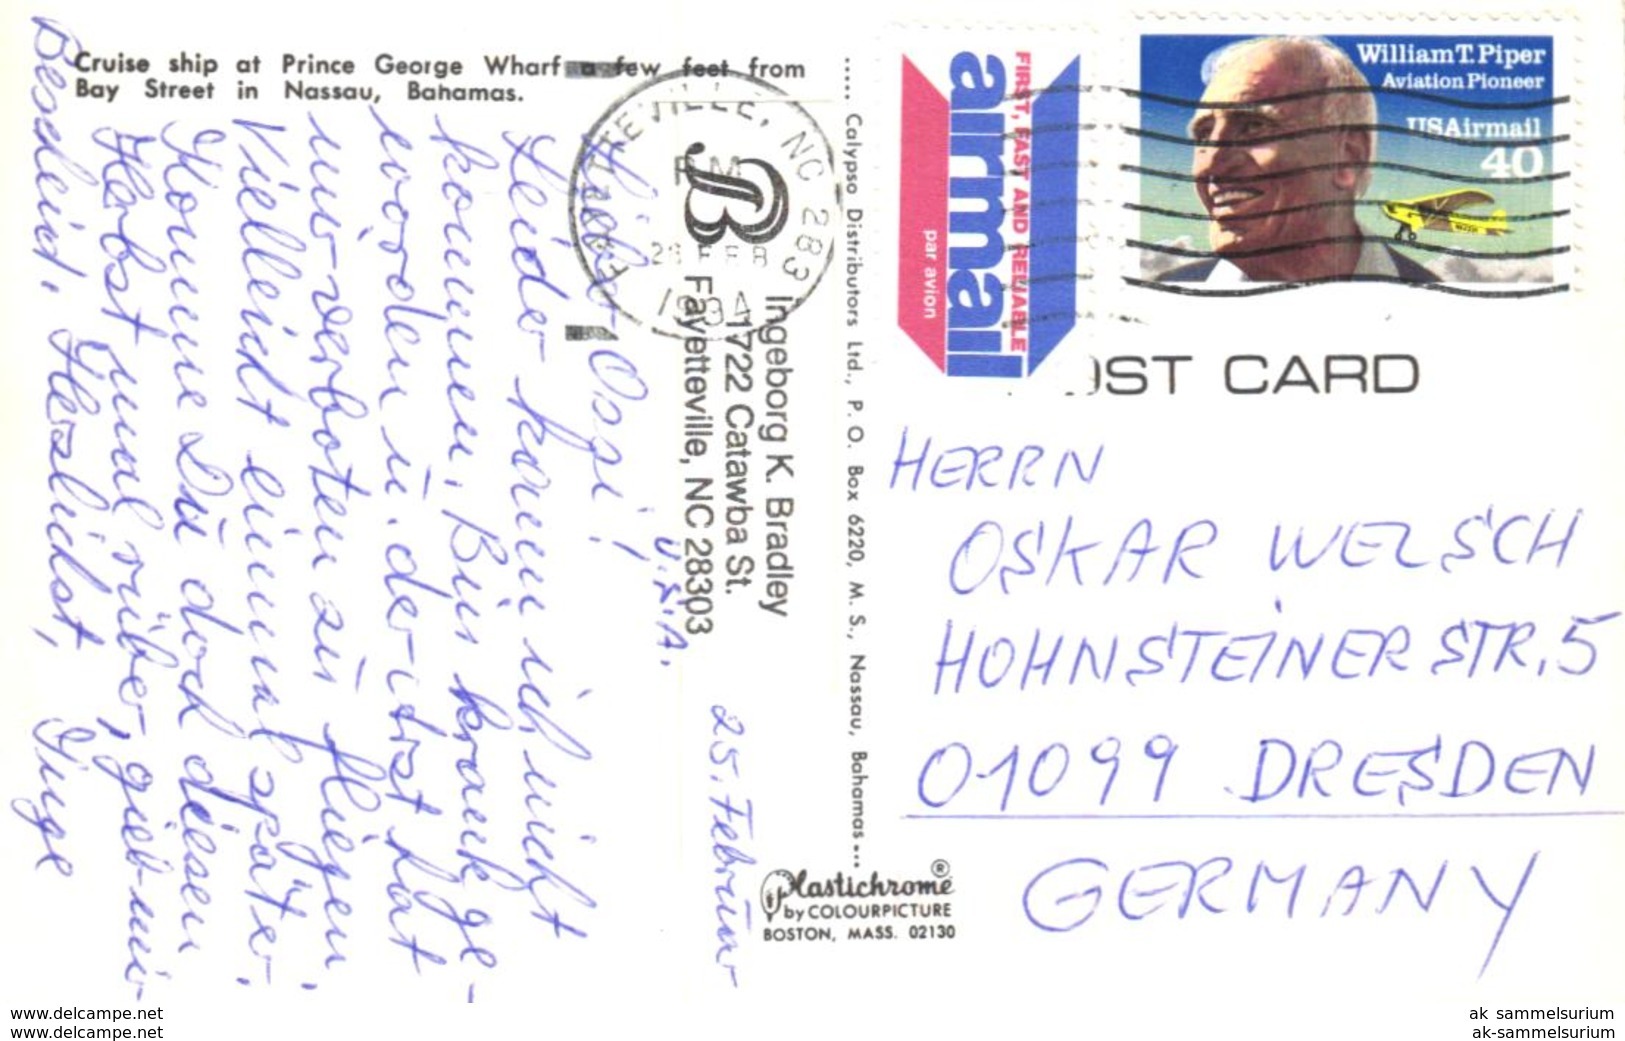 Cruise ship at Prince George Wharf a few feet from
Bay Street in Nassau, Bahamas.
Lieber Ossi!
Leider kann ich nicht
kommen. Bin krank ge-
worden u. der Arzt hat
mir verboten zu fliegen.
Vielleicht einmal später.
Komme Du doch diesen
Herbst mal rüber, gieb mir
Bescheid. Herzlichst, Inge
25. Februar
B
Ingeborg K. Bradley
1722 Catawba St.
Fayetteville, NC 28303
U.S.A.
FAYETTEVILLE, NC 283
PM
FEB
1994
Calypso Distributors Ltd., P. O. Box 6220, M. S., Nassau, Bahamas
Plastichrome®
by COLOURPICTURE
BOSTON, MASS. 02130
FIRST, FAST AND RELIABLE
airmail
par avion
William T. Piper
Aviation Pioneer
USAirmail
40
OST CARD
HERRN
OSKAR WELSCH
HOHNSTEINER STR. 5
01099 DRESDEN
GERMANY
www.delcampe.net
www.delcampe.net
ak_sammelsurium
ak-sammelsurium